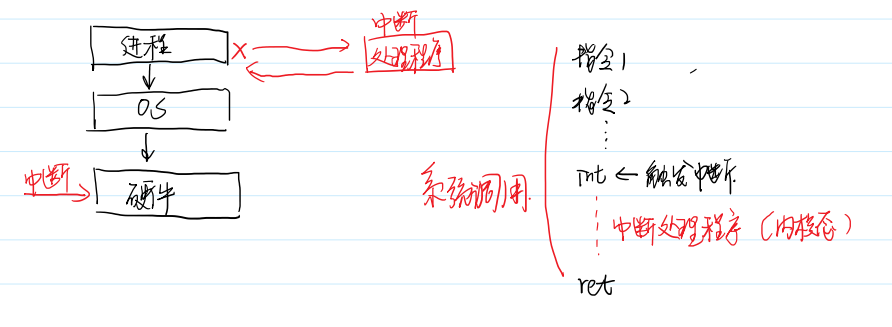 中断
进程
处理程序
OS
中断
硬件
系统调用
指令1
指令2
int ← 触发中断
中断处理程序（内核态）
ret